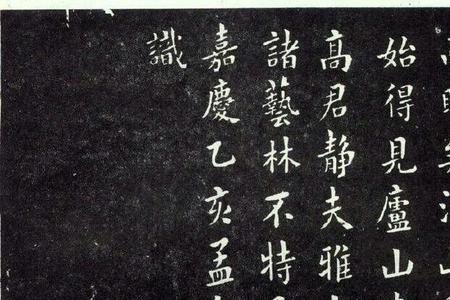 始得見廬山
高君静夫雅
諸藝林不特
嘉慶乙亥孟
識